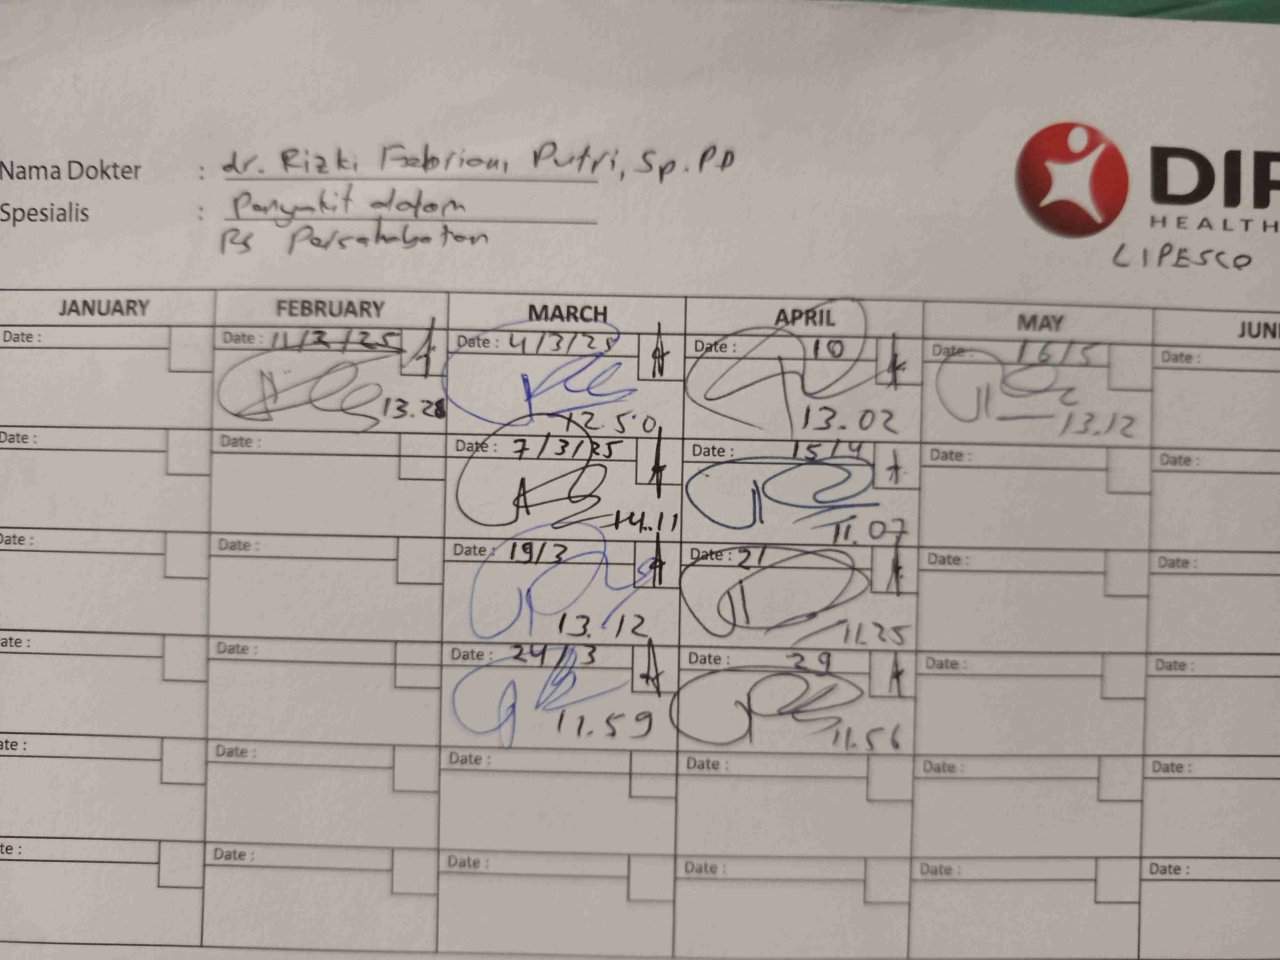 Nama Dokter : dr. Rizki Febriani Putri, Sp.PD
Spesialis : Penyakit dalam
Rs Persahabatan
DIP
HEALTH
LIPESCO
JANUARY FEBRUARY MARCH APRIL MAY JUN
Date : Date : 11/2/25 Date : 4/3/25 Date : 10 Date : 16/5 Date :
13.28 12.50 13.02 13.12
Date : Date : Date : 7/3/25 Date : 15/4 Date : Date :
14.11 11.07
Date : Date : Date : 19/3 Date : 21 Date : Date :
13.12 11.25
ate : Date : Date : 24/3 Date : 29 Date : Date :
11.59 11.56
ate : Date : Date : Date : Date : Date :
te : Date : Date : Date : Date : Date :